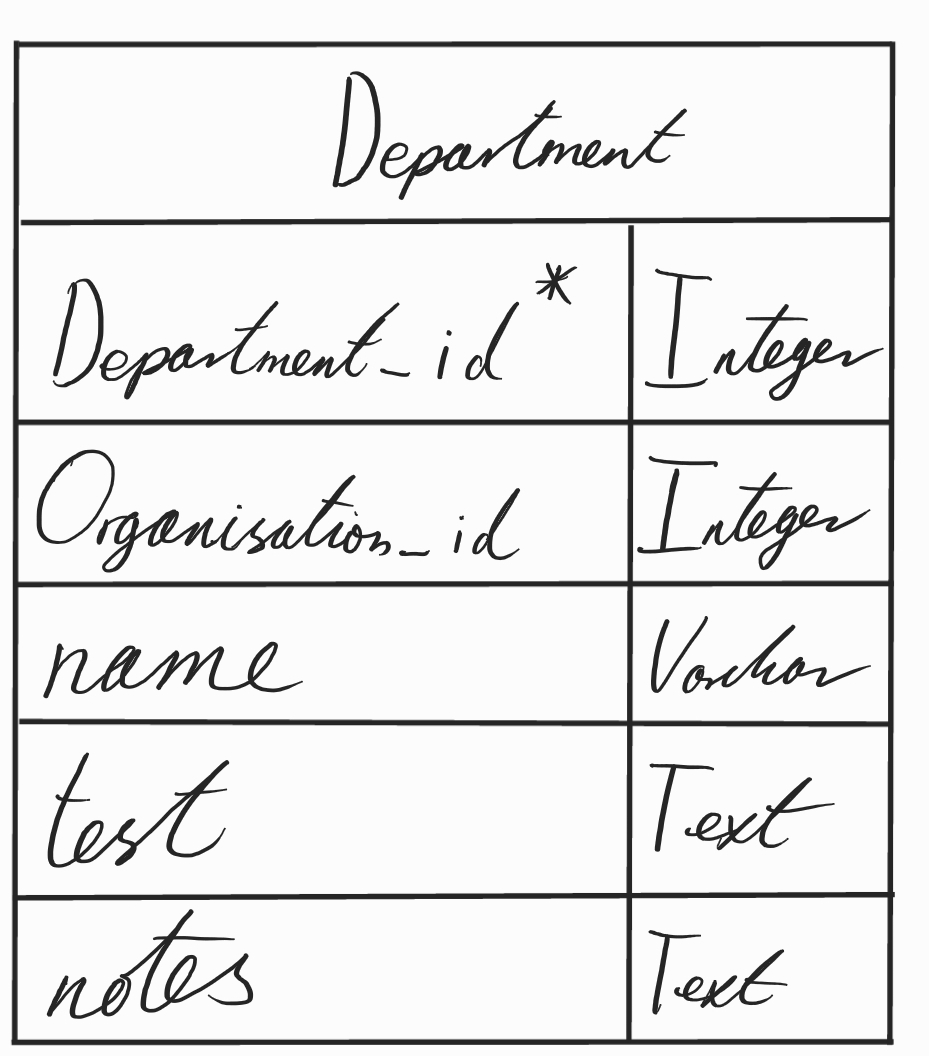 Department
Department_id* Integer
Organisation_id Integer
name Varchar
test Text
notes Text